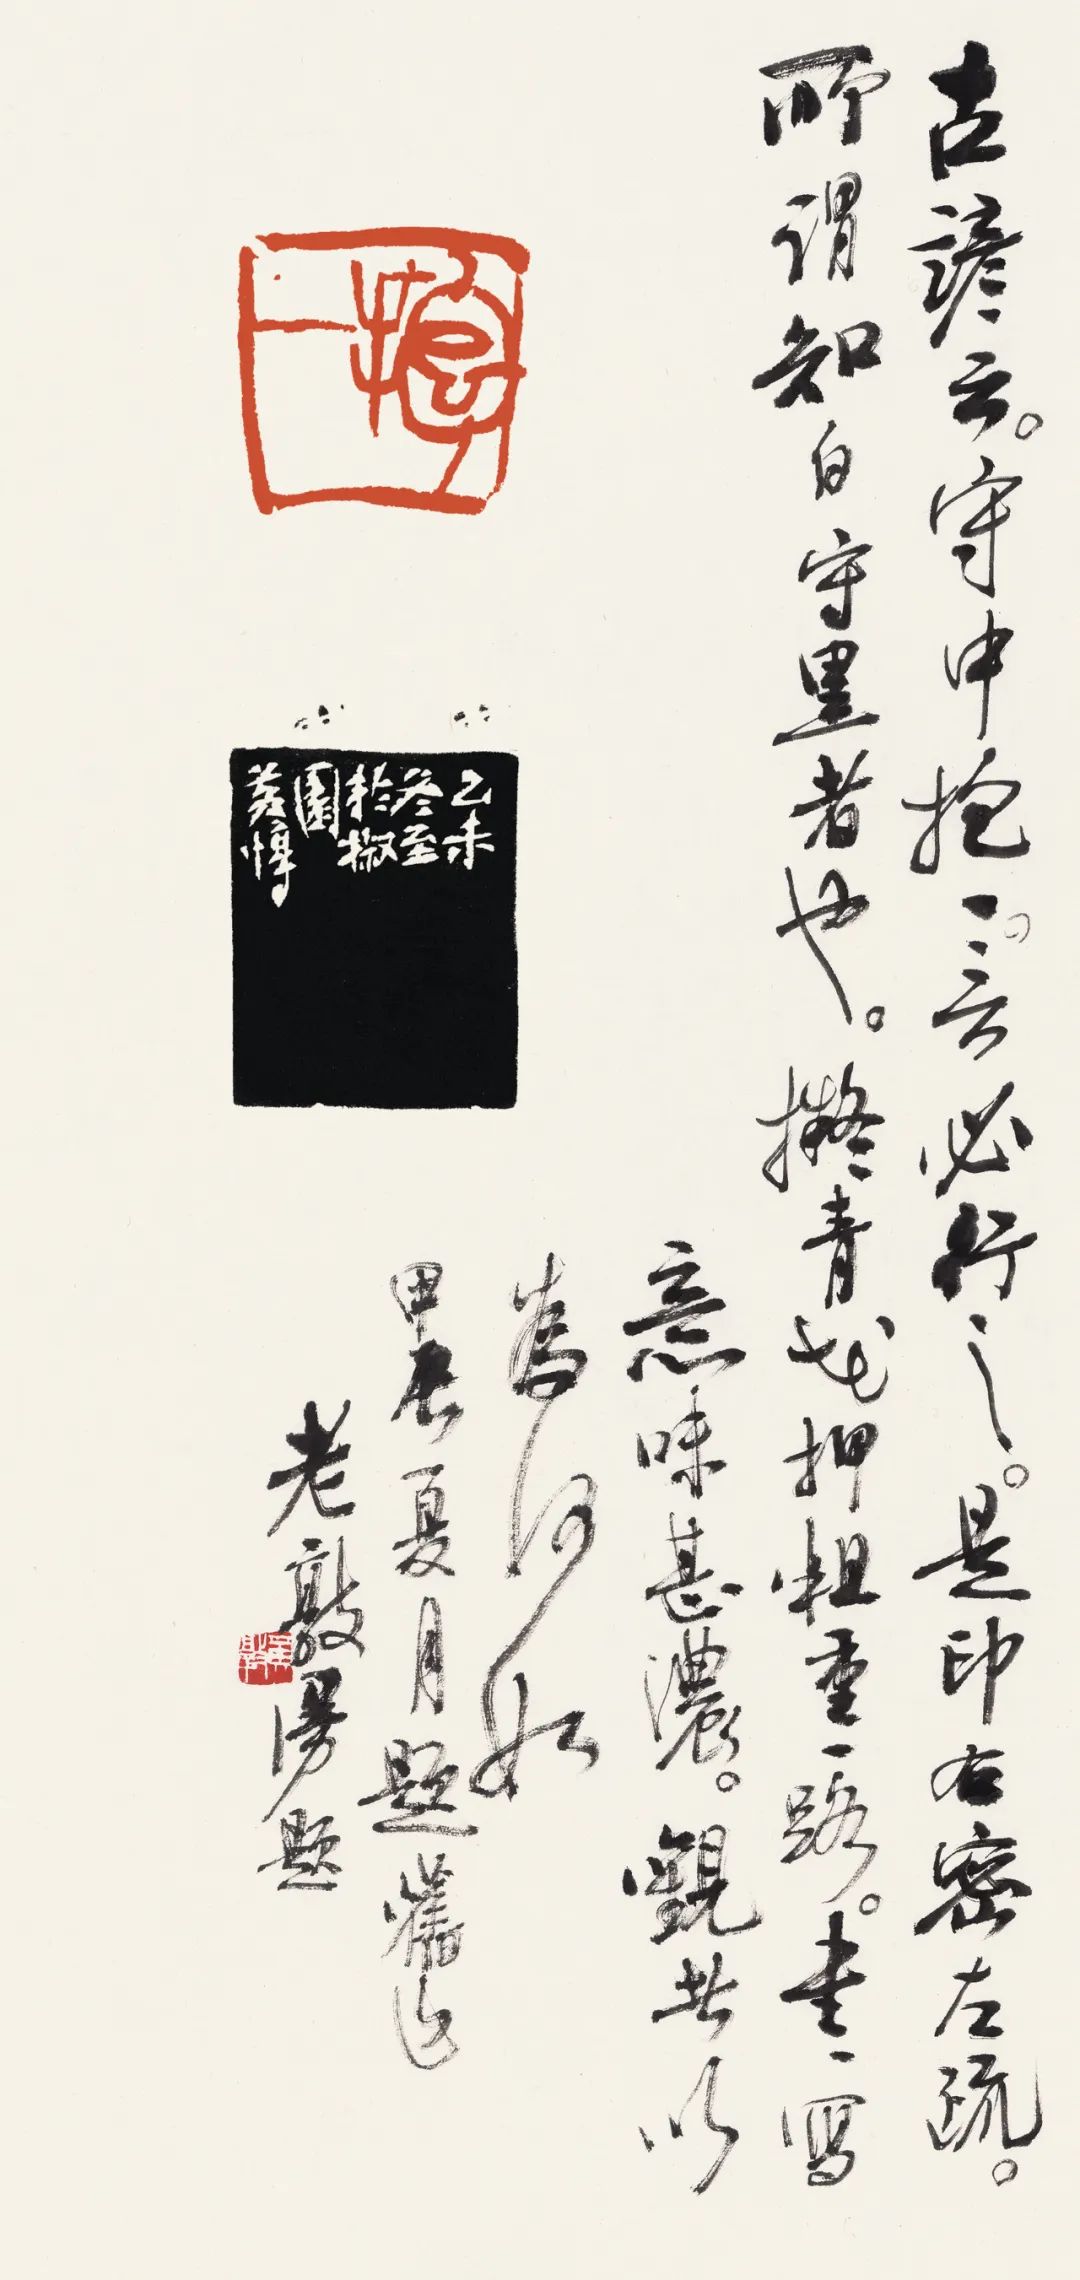 古諺云。守中抱一。言必行之。是印右密左疏。
所謂知白守黑者也。擬青花押粗重一路。書寫
意味甚濃。觀此以
為何如
甲辰夏月題舊作
老敦漫題
抱一
乙未
冬至
於椒
園
黃惇